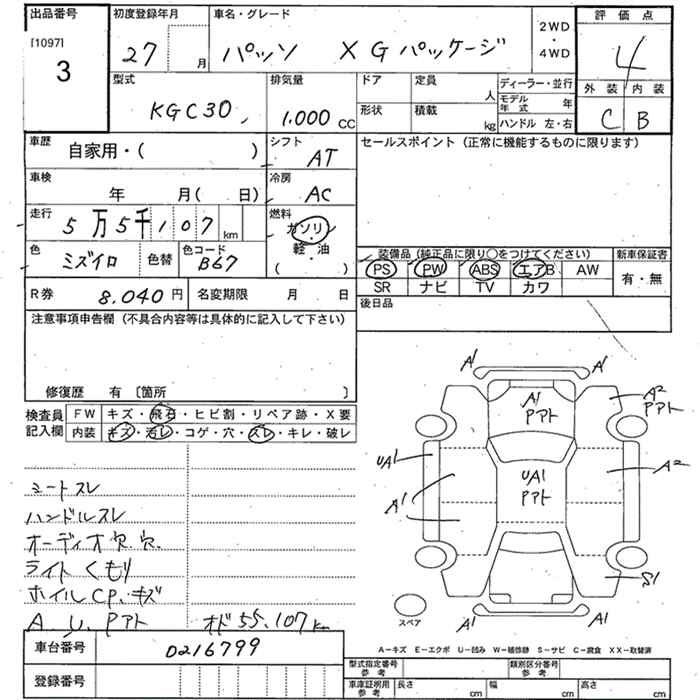 出品番号
[1097]
3
初度登録年月
27 月
車名・グレード
パッソ X Gパッケージ
2WD
・
4WD
評価点
4
外装 内装
C B
型式
KGC30
排気量
1.000 CC
ドア
形状
定員 人
積載 kg
ディーラー・並行
モデル年式 年
ハンドル 左・右
車歴
自家用・( )
シフト
AT
セールスポイント (正常に機能するものに限ります)
車検
年 月( 日)
冷房
AC
走行
5万5千107 km
燃料
ガソリン
・
軽・油
( )
色
ミズイロ
色替
色コード
B67
装備品 (純正品に限り○をつけてください)
新車保証書
PS PW ABS エアB AW
SR ナビ TV カワ
有・無
R券 8.040円
名変期限 月 日
後日品
注意事項申告欄 (不具合内容等は具体的に記入して下さい)
修復歴 有 〔箇所 〕
検査員
記入欄
FW キズ・飛石・ヒビ割・リペア跡・X要
内装 キズ・汚レ・コゲ・穴・スレ・キレ・破レ
シートスレ
ハンドルスレ
オーディオ欠.穴.
ライトくもり
ホイルCP.キズ
A U.アアト オド55.107km
A1
A1
A1
アアト
A2
アアト
UA1
UA1
アアト
A2
A1
S1
A1
A1
スペア
A-キズ E-エクボ U-凹み W-補修跡 S-サビ C-腐食 XX-取替済
車台番号 0216799
登録番号
型式指定番号
参考
類別区分番号
参考
車庫証明用
参考
長さ cm
幅 cm
高さ cm